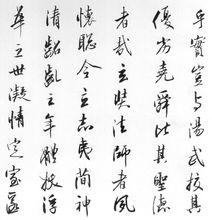 乎豈與湯武校其
優劣堯舜比其聖德
者哉玄奘法師者夙
懷聰令立志夷簡神
清齠齔之年體拔浮
華之世凝情定室匿